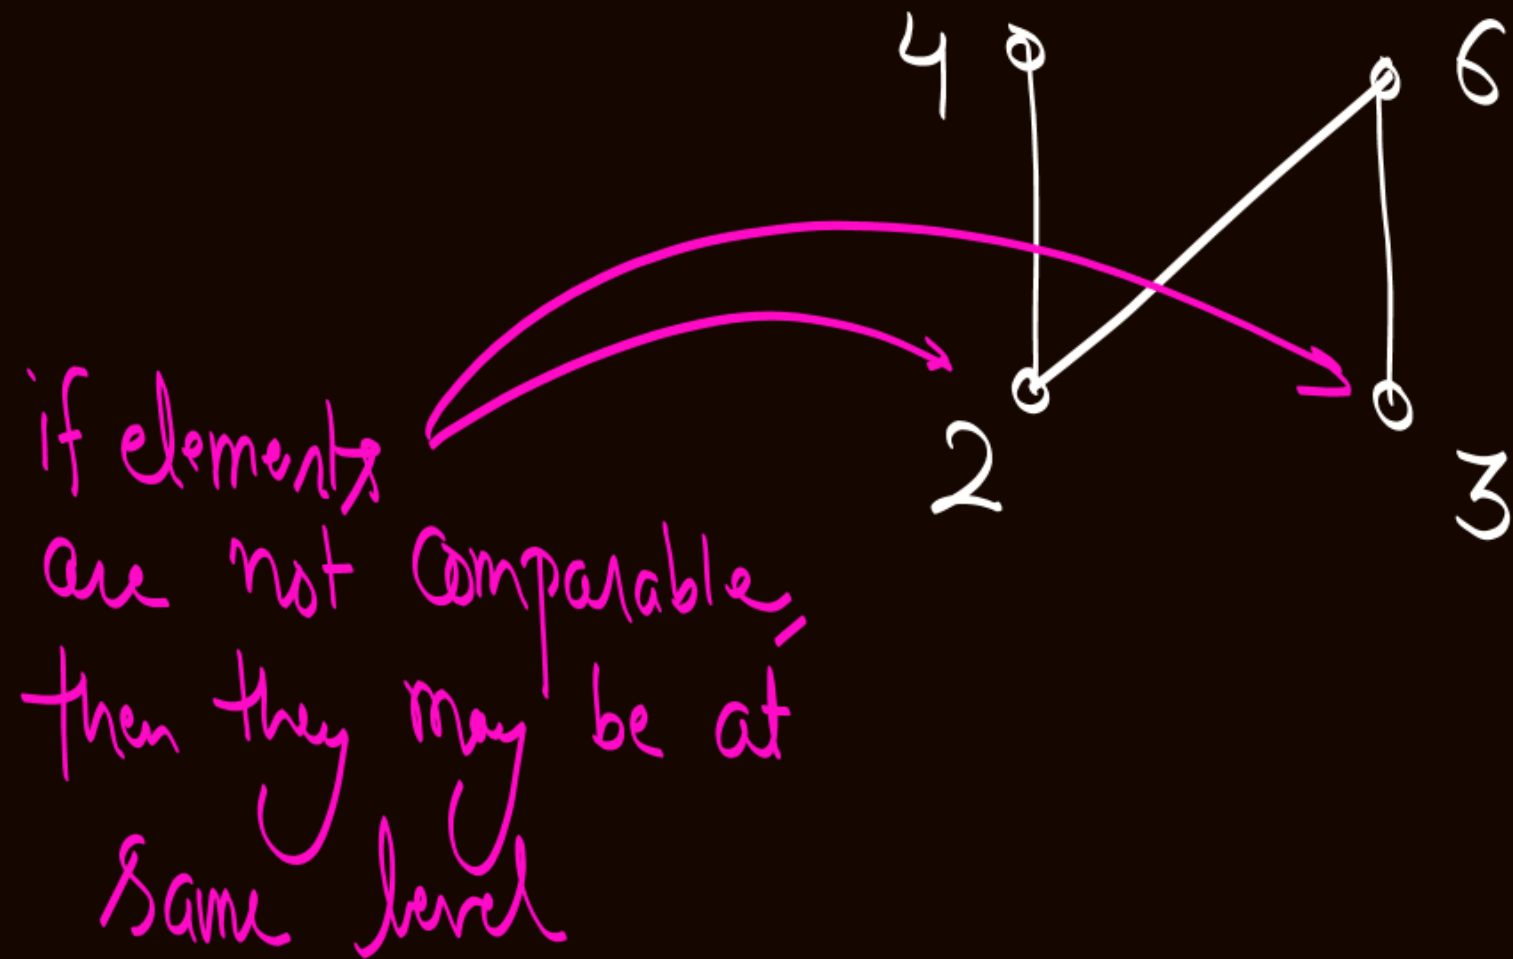 4 6
2
3
if elements
are not comparable,
then they may be at
same level